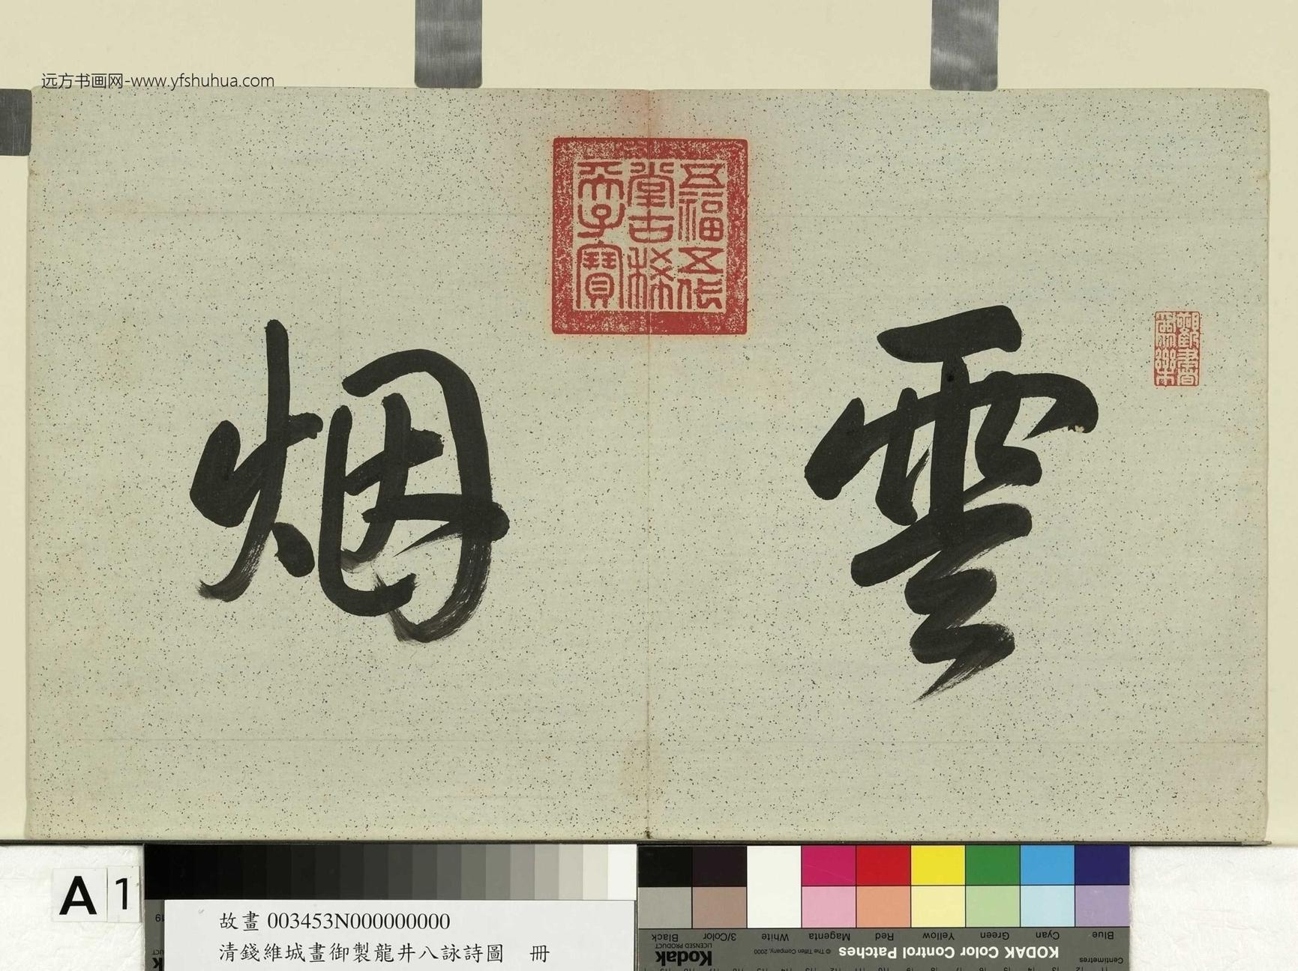 远方书画网-www.yfshuhua.com
五福五代
堂古稀
天子寶
雲烟
觀書
為樂
A 1
故畫 003453N000000000
清錢維城畫御製龍井八詠詩圖 冊
Blue Cyan Green Yellow Red Magenta White 3/Color Black
KODAK Color Control Patches
© The Tiffen Company, 2000
Kodak
LICENSED PRODUCT
Centimetres